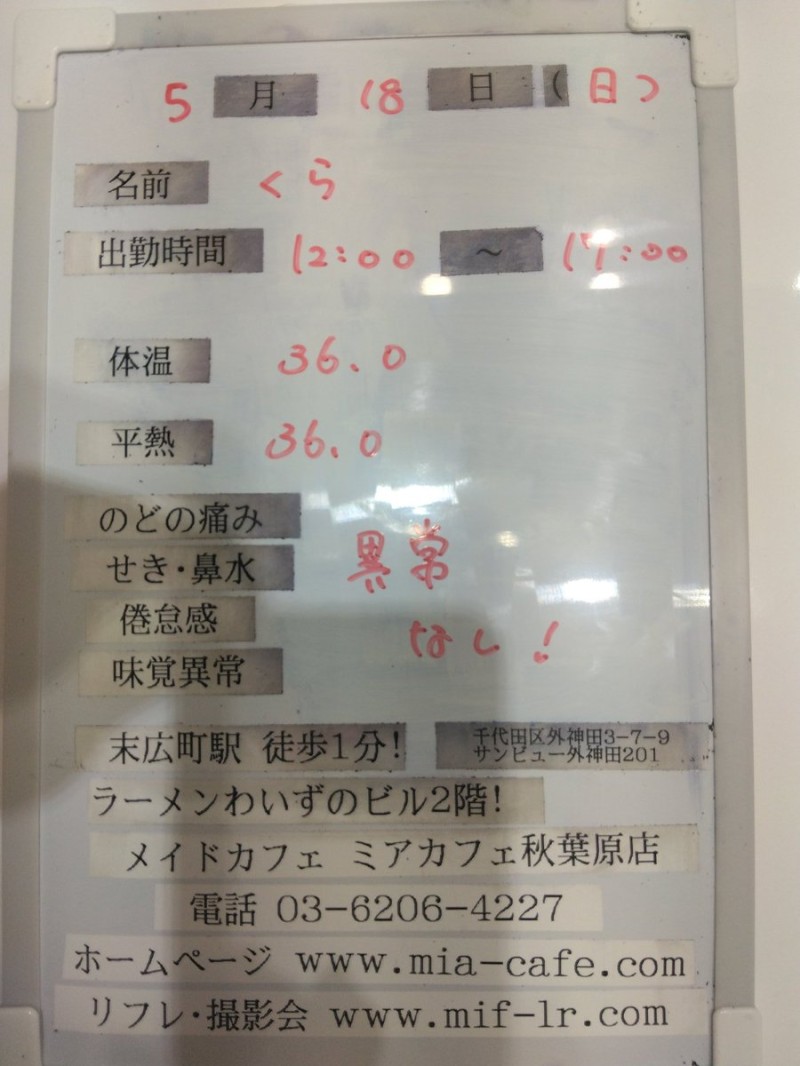 5月18日(日)
名前 くら
出勤時間 12:00 ~ 17:00
体温 36.0
平熱 36.0
のどの痛み
せき・鼻水
倦怠感
味覚異常
異常
なし!
末広町駅 徒歩1分!
千代田区外神田3-7-9
サンビュー外神田201
ラーメンわいずのビル2階!
メイドカフェ ミアカフェ秋葉原店
電話 03-6206-4227
ホームページ www.mia-cafe.com
リフレ・撮影会 www.mif-lr.com